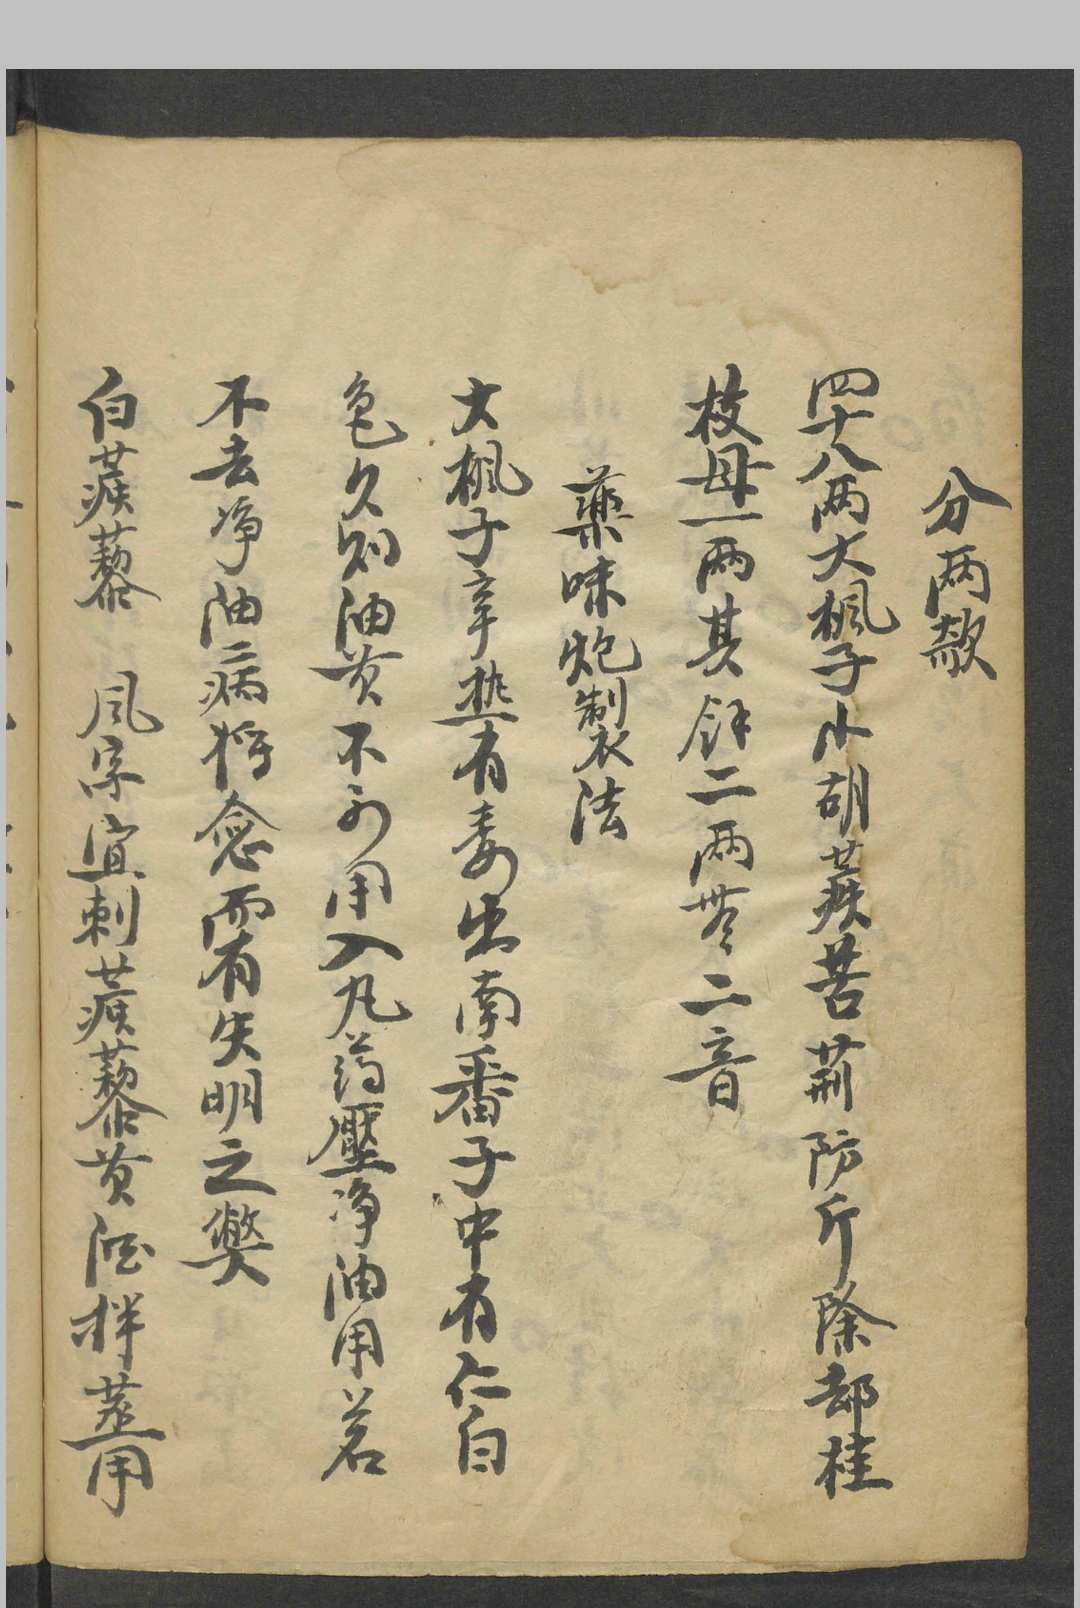 分兩款
四十八兩大楓子小胡蒺苦荊防斤除却桂
枝母一兩其餘二兩零二音
藥味炮製法
大楓子辛热有毒出南番子中有仁白
色久則油黄不可用入丸药壓净油用若
不去净油病將愈而有失明之獘
白蒺藜 風字宜刺蒺藜黄酒拌蒸用